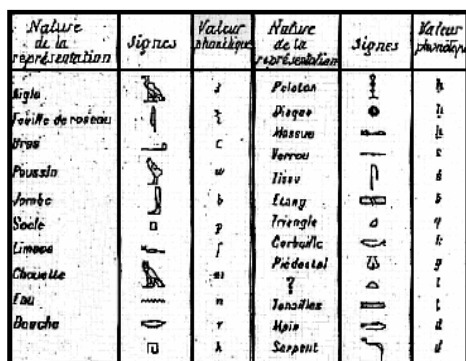 Nature de la représentation Signes Valeur phonétique Nature de la représentation Signes Valeur phonétique
Aigle Peloton h
Feuille de roseau Disque
Bras Massue
Poussin w Verrou
Jambe b Tissu
Socle p Etang
Limace f Triangle
Chouette m Corbeille k
Eau n Piédestal g
Bouche r ? t
h Tenailles
Main d
Serpent d